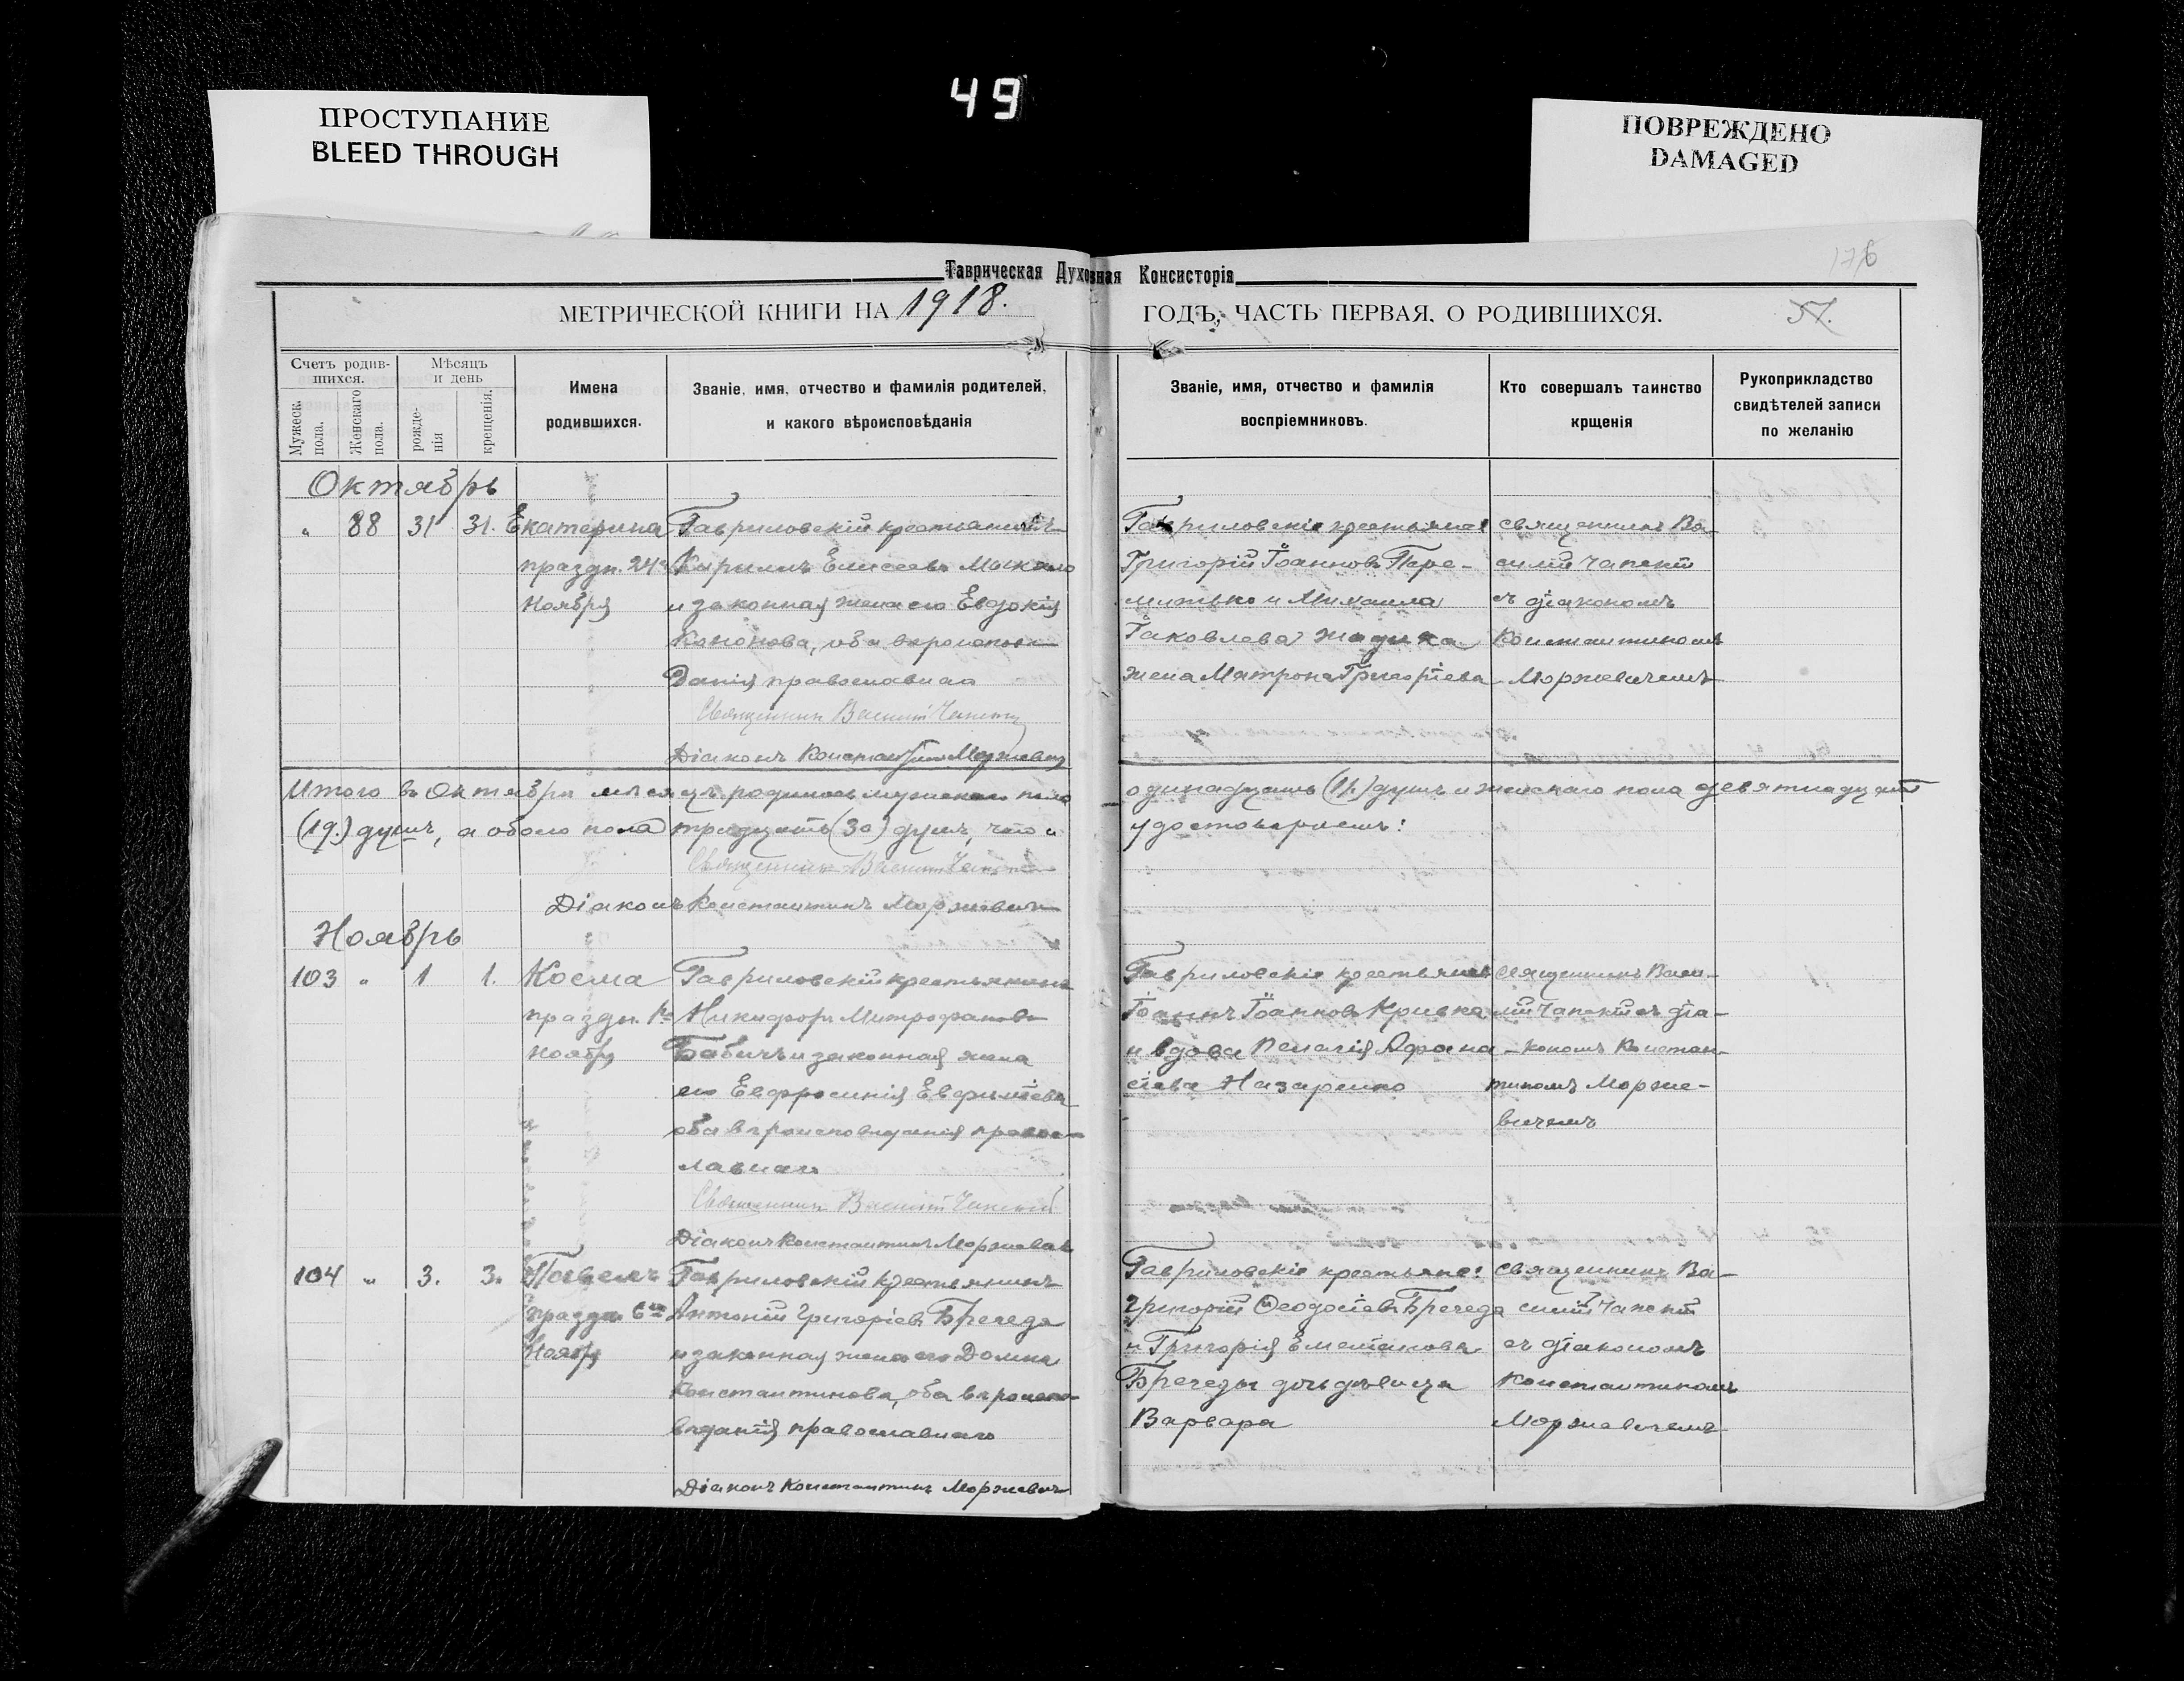 49
ПРОСТУПАНИЕ
BLEED THROUGH
ПОВРЕЖДЕНО
DAMAGED
176
Таврическая Духовная Консисторія
МЕТРИЧЕСКОЙ КНИГИ НА 1918.
ГОДЪ, ЧАСТЬ ПЕРВАЯ, О РОДИВШИХСЯ.
57.
Счетъ родив-
шихся.
Мужеск.
пола.
Женскаго
пола.
Мѣсяцъ
и день
рожде-
нія
крещенія.
Имена
родившихся.
Званіе, имя, отчество и фамилія родителей,
и какого вѣроисповѣданія
Званіе, имя, отчество и фамилія
воспріемниковъ.
Кто совершалъ таинство
крщенія
Рукоприкладство
свидѣтелей записи
по желанію
Октябрь
" 88 31 31. Екатерина
праздн. 24го
Ноября
Гавриловскій крестьянинъ
Кириллъ Елисеевъ
и законная жена его Евдокія
Кононова, оба вѣроисповѣ-
данія православнаго
Священникъ Василій Чапскій
Діаконъ Константинъ Моржевичъ
Гавриловскіе крестьяне:
Григорій Іоанновъ Пере-
митько и Михаила
Іаковлева
жена Матрона Григоріева
священникъ Ва-
силій Чапскій
съ діакономъ
Константиномъ
Моржевичемъ
Итого въ Октябрѣ мѣсяцѣ родилось мужескаго пола
одинадцать (11.) душъ и женскаго пола девятнадцать
(19.) душъ, а обоего пола тридцать (30) душъ, что и
удостовѣряемъ:
Священникъ Василій Чапскій
Діаконъ Константинъ Моржевичъ
Ноябрь
103 " 1 1. Косма
праздн. 1го
Ноября
Гавриловскій крестьянинъ
Никифоръ Митрофановъ
Бабичъ и законная жена
его Евфросинія Евфиміева
оба вѣроисповѣданія правос-
лавнаго
Священникъ Василій Чапскій
Діаконъ Константинъ Моржевичъ
Гавриловскіе крестьяне:
Іоаннъ Іоанновъ Кривка
и вдова Пелагія Афана-
сіева Назаренко
священникъ Васи-
лій Чапскій съ діа-
кономъ Констан-
тиномъ Морже-
вичемъ
104 " 3. 3. Павелъ
праздн. 6го
Ноября
Гавриловскій крестьянинъ
Антоній Григоріевъ Бреgeда
и законная жена его Домна
Константинова, оба вѣроиспо-
вѣданія православнаго
Діаконъ Константинъ Моржевичъ
Гавриловскіе крестьяне:
Григорій Ѳеодосіевъ
и Григорія Емеліанова
дочь дѣвица
Варвара
священникъ Ва-
силій Чапскій
съ діакономъ
Константиномъ
Моржевичемъ